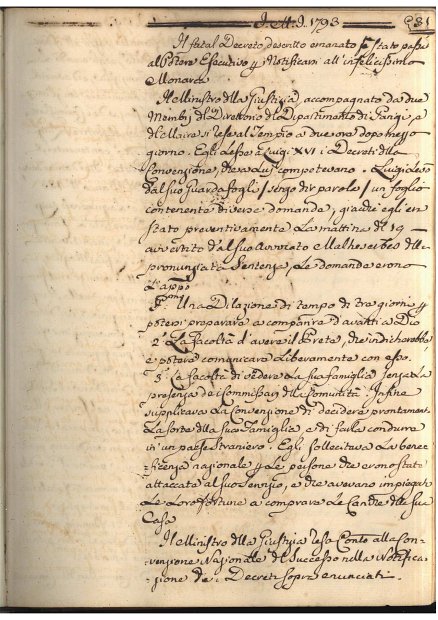 I. M. I. 1793
Il fatal Decreto descritto emanato fù stato passò
al Potere Esecutivo p Notificarsi all' infelicissimo
Monarca
Il Ministro dlla Giustizia, accompagnato da due
Membri d Direttorio d Dipartimento di Parigi, e
d Maire si rese al Tempio a due ore dopo mezzo
giorno. Egli lesse a Luigi XVI i Decreti dlla
Convenzione, che a Lui competevano. Luigi lesse
dal suo guardafogli / senza dir parola / un foglio
contenente diverse domande, giacchè egli era
stato preventivamente la mattina d 19
avvertito dal suo Avvocato Malhesierbes dlla
pronunziata Sentenza, le domande erono
l'appo
P.mo Una Dilazione di tempo di tre giorni p
potersi preparare a comparire d'avanti a Dio
2 La facoltà d'avere il Prete, che indicherebbe,
e potere comunicare liberamente con esso.
3 La facoltà di vedere la sua famiglia senza la
presenza de i Commissarj dlla Comunità. Infine
supplicava la Convenzione di decidere prontamente
la sorte dlla sua Famiglia e di farla condurre
in un paese straniero. Egli sollecitava la bene-
ficenza nazionale p le persone che erono state
attaccate al suo servizio, e che avevano impiegate
le loro fortune a comprare le Cariche dlla sua
Casa
Il Ministro dlla Giustizia rese Conto alla Con-
venzione Nazionale d Successo nella Notifica-
zione de i Decreti sopra enunciati.